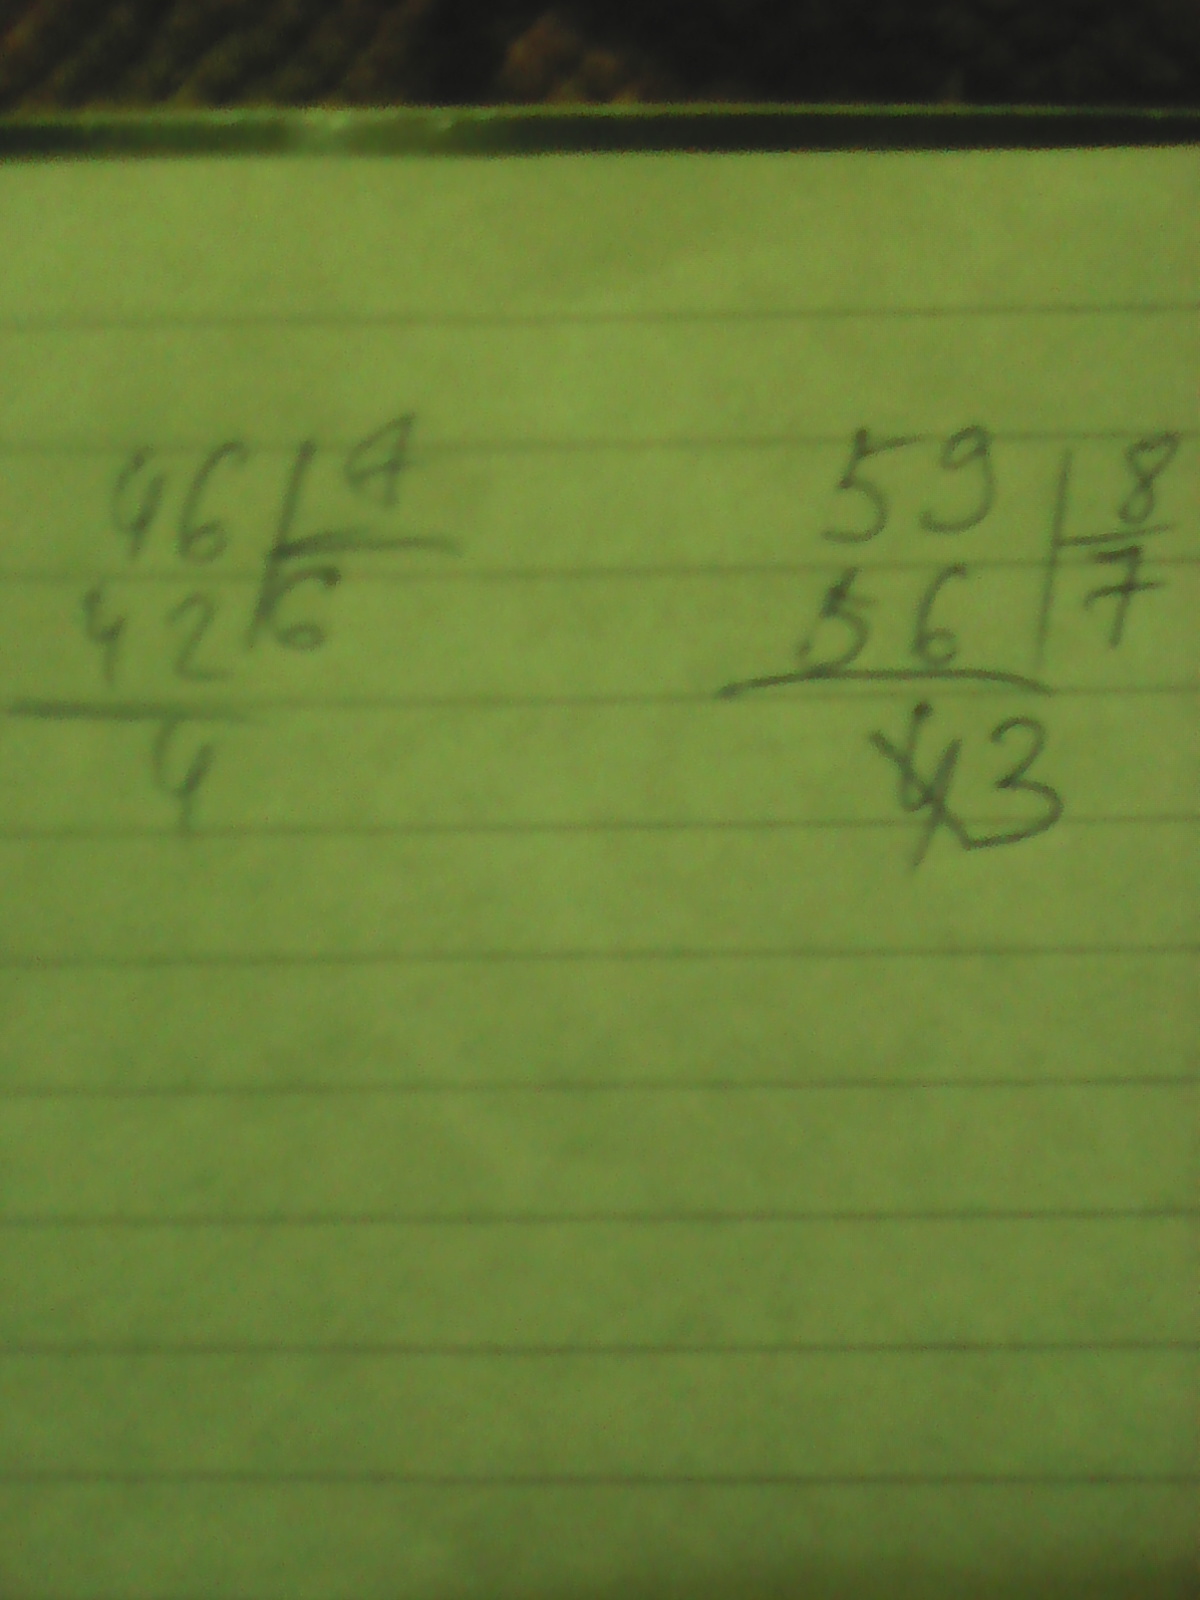 46 7 59 8
42 6 56 7
4 3